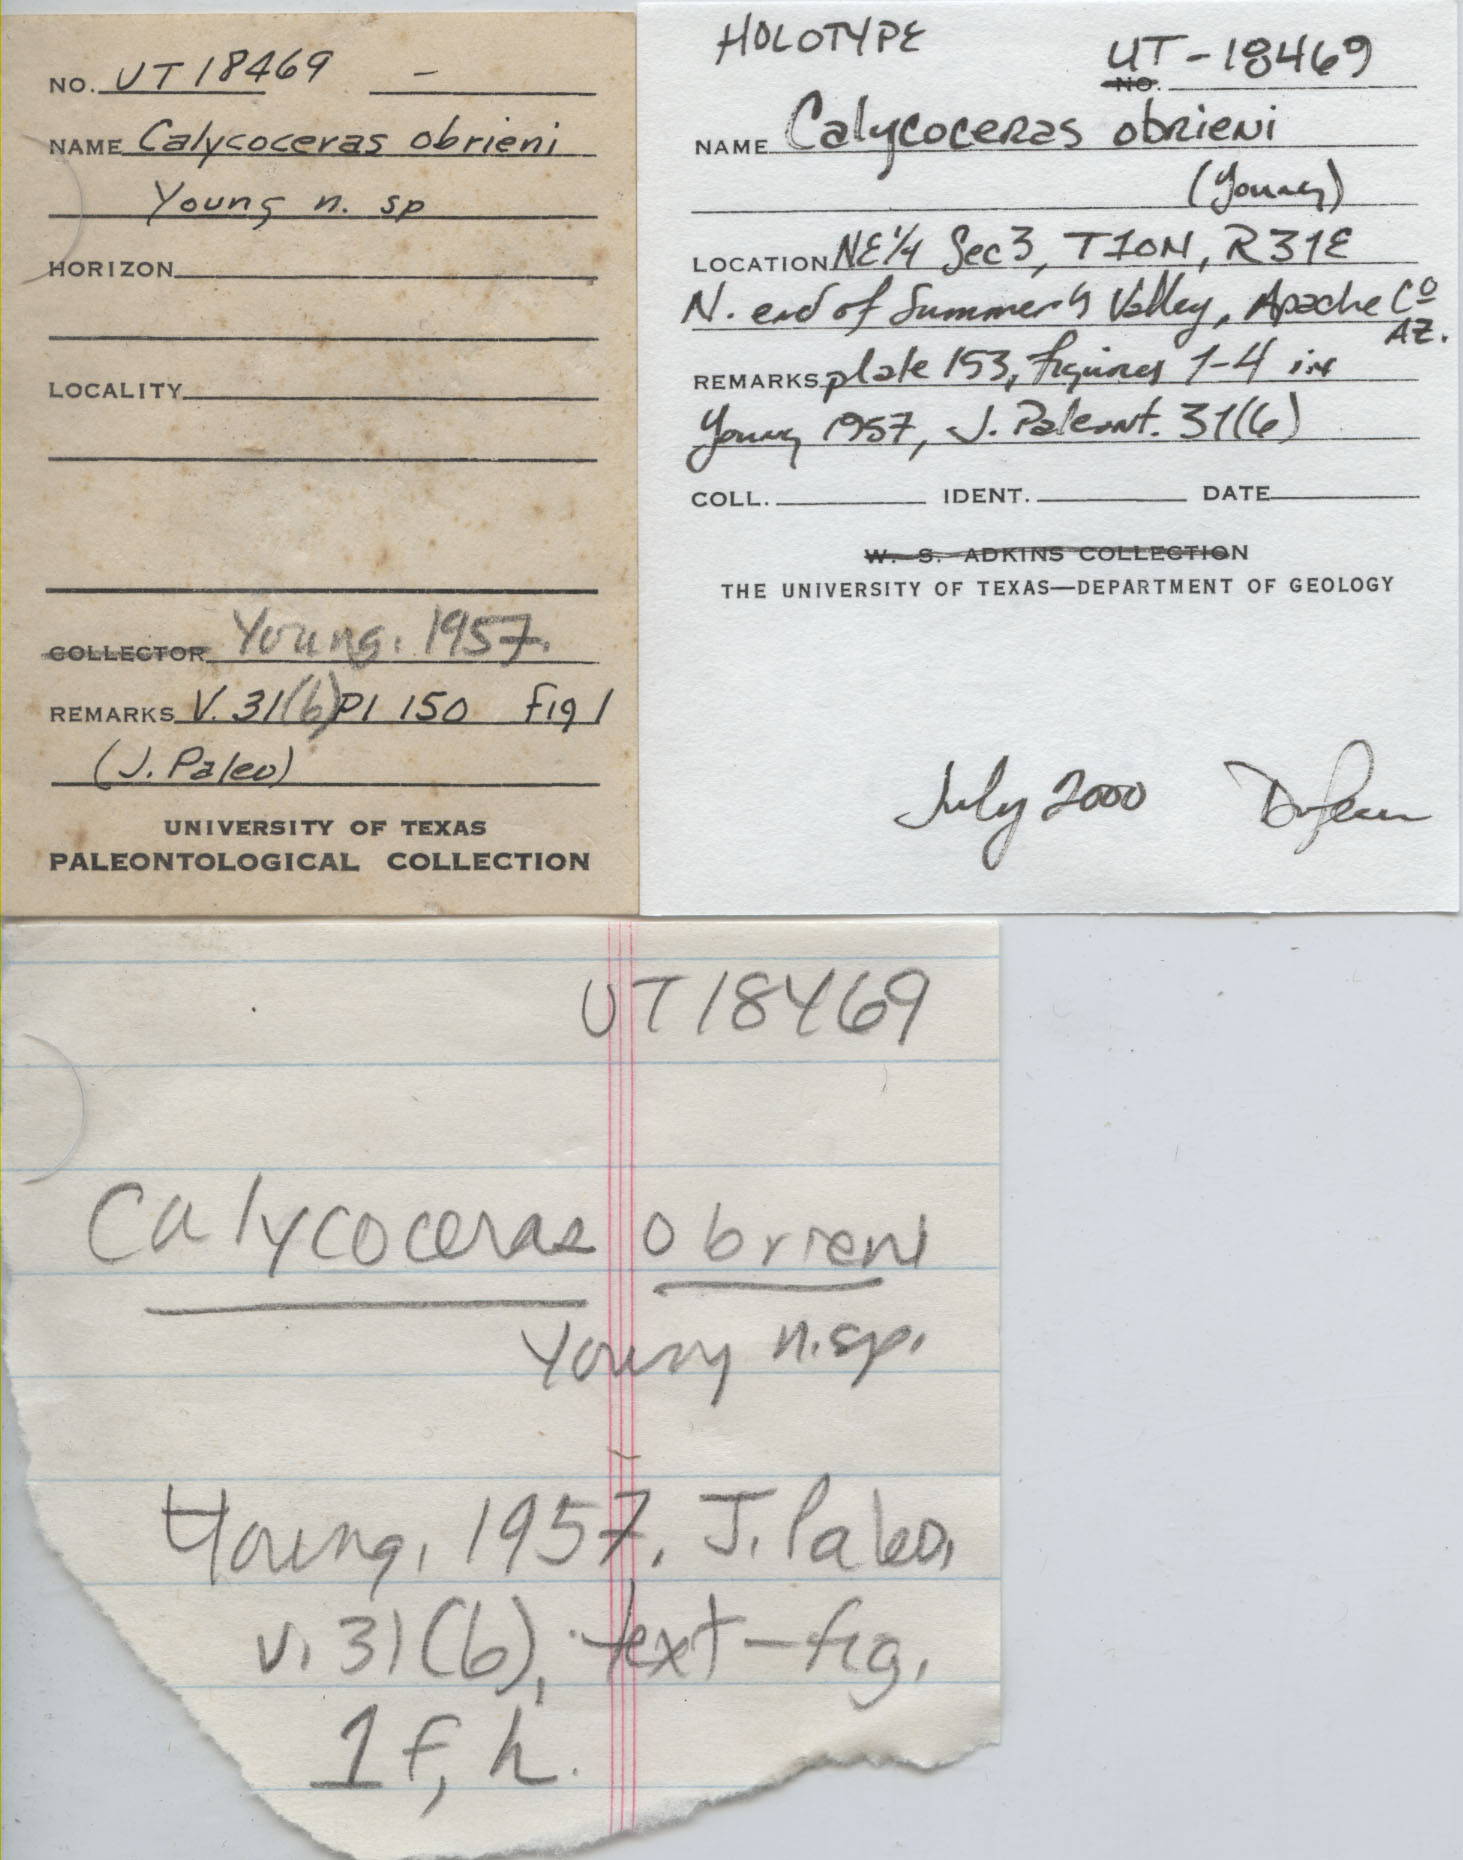 NO. UT 18469 –
NAME Calycoceras obrieni
Young n. sp
HORIZON
LOCALITY
COLLECTOR Young. 1957.
REMARKS V. 31(6) Pl 150 Fig 1
(J. Paleo)
UNIVERSITY OF TEXAS
PALEONTOLOGICAL COLLECTION
HOLOTYPE
UT-18469
NO.
NAME Calycoceras obrieni
(Young)
LOCATION NE 1/4 Sec 3, T10N, R31E
N. end of Summer's Valley, Apache Co
AZ.
REMARKS plate 153, figures 1-4 in
Young 1957, J. Paleont. 31(6)
COLL. IDENT. DATE
W. S. ADKINS COLLECTION
THE UNIVERSITY OF TEXAS—DEPARTMENT OF GEOLOGY
July 2000
UT 18469
Calycoceras obrieni
Young n.sp.
Young, 1957, J. Paleo,
v. 31(6), text-fig.
1f, h.